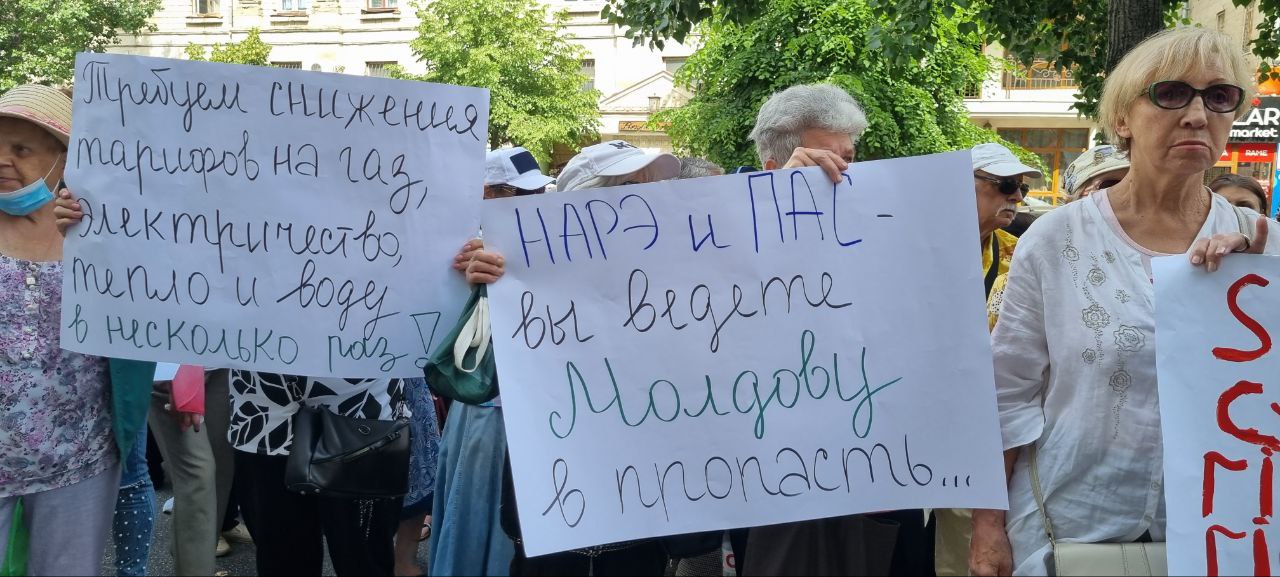 Требуем снижения
тарифов на газ,
электричество,
тепло и воду
в несколько раз!
НАРЭ и ПАС -
вы ведете
Молдову
в пропасть...
market.
RAME